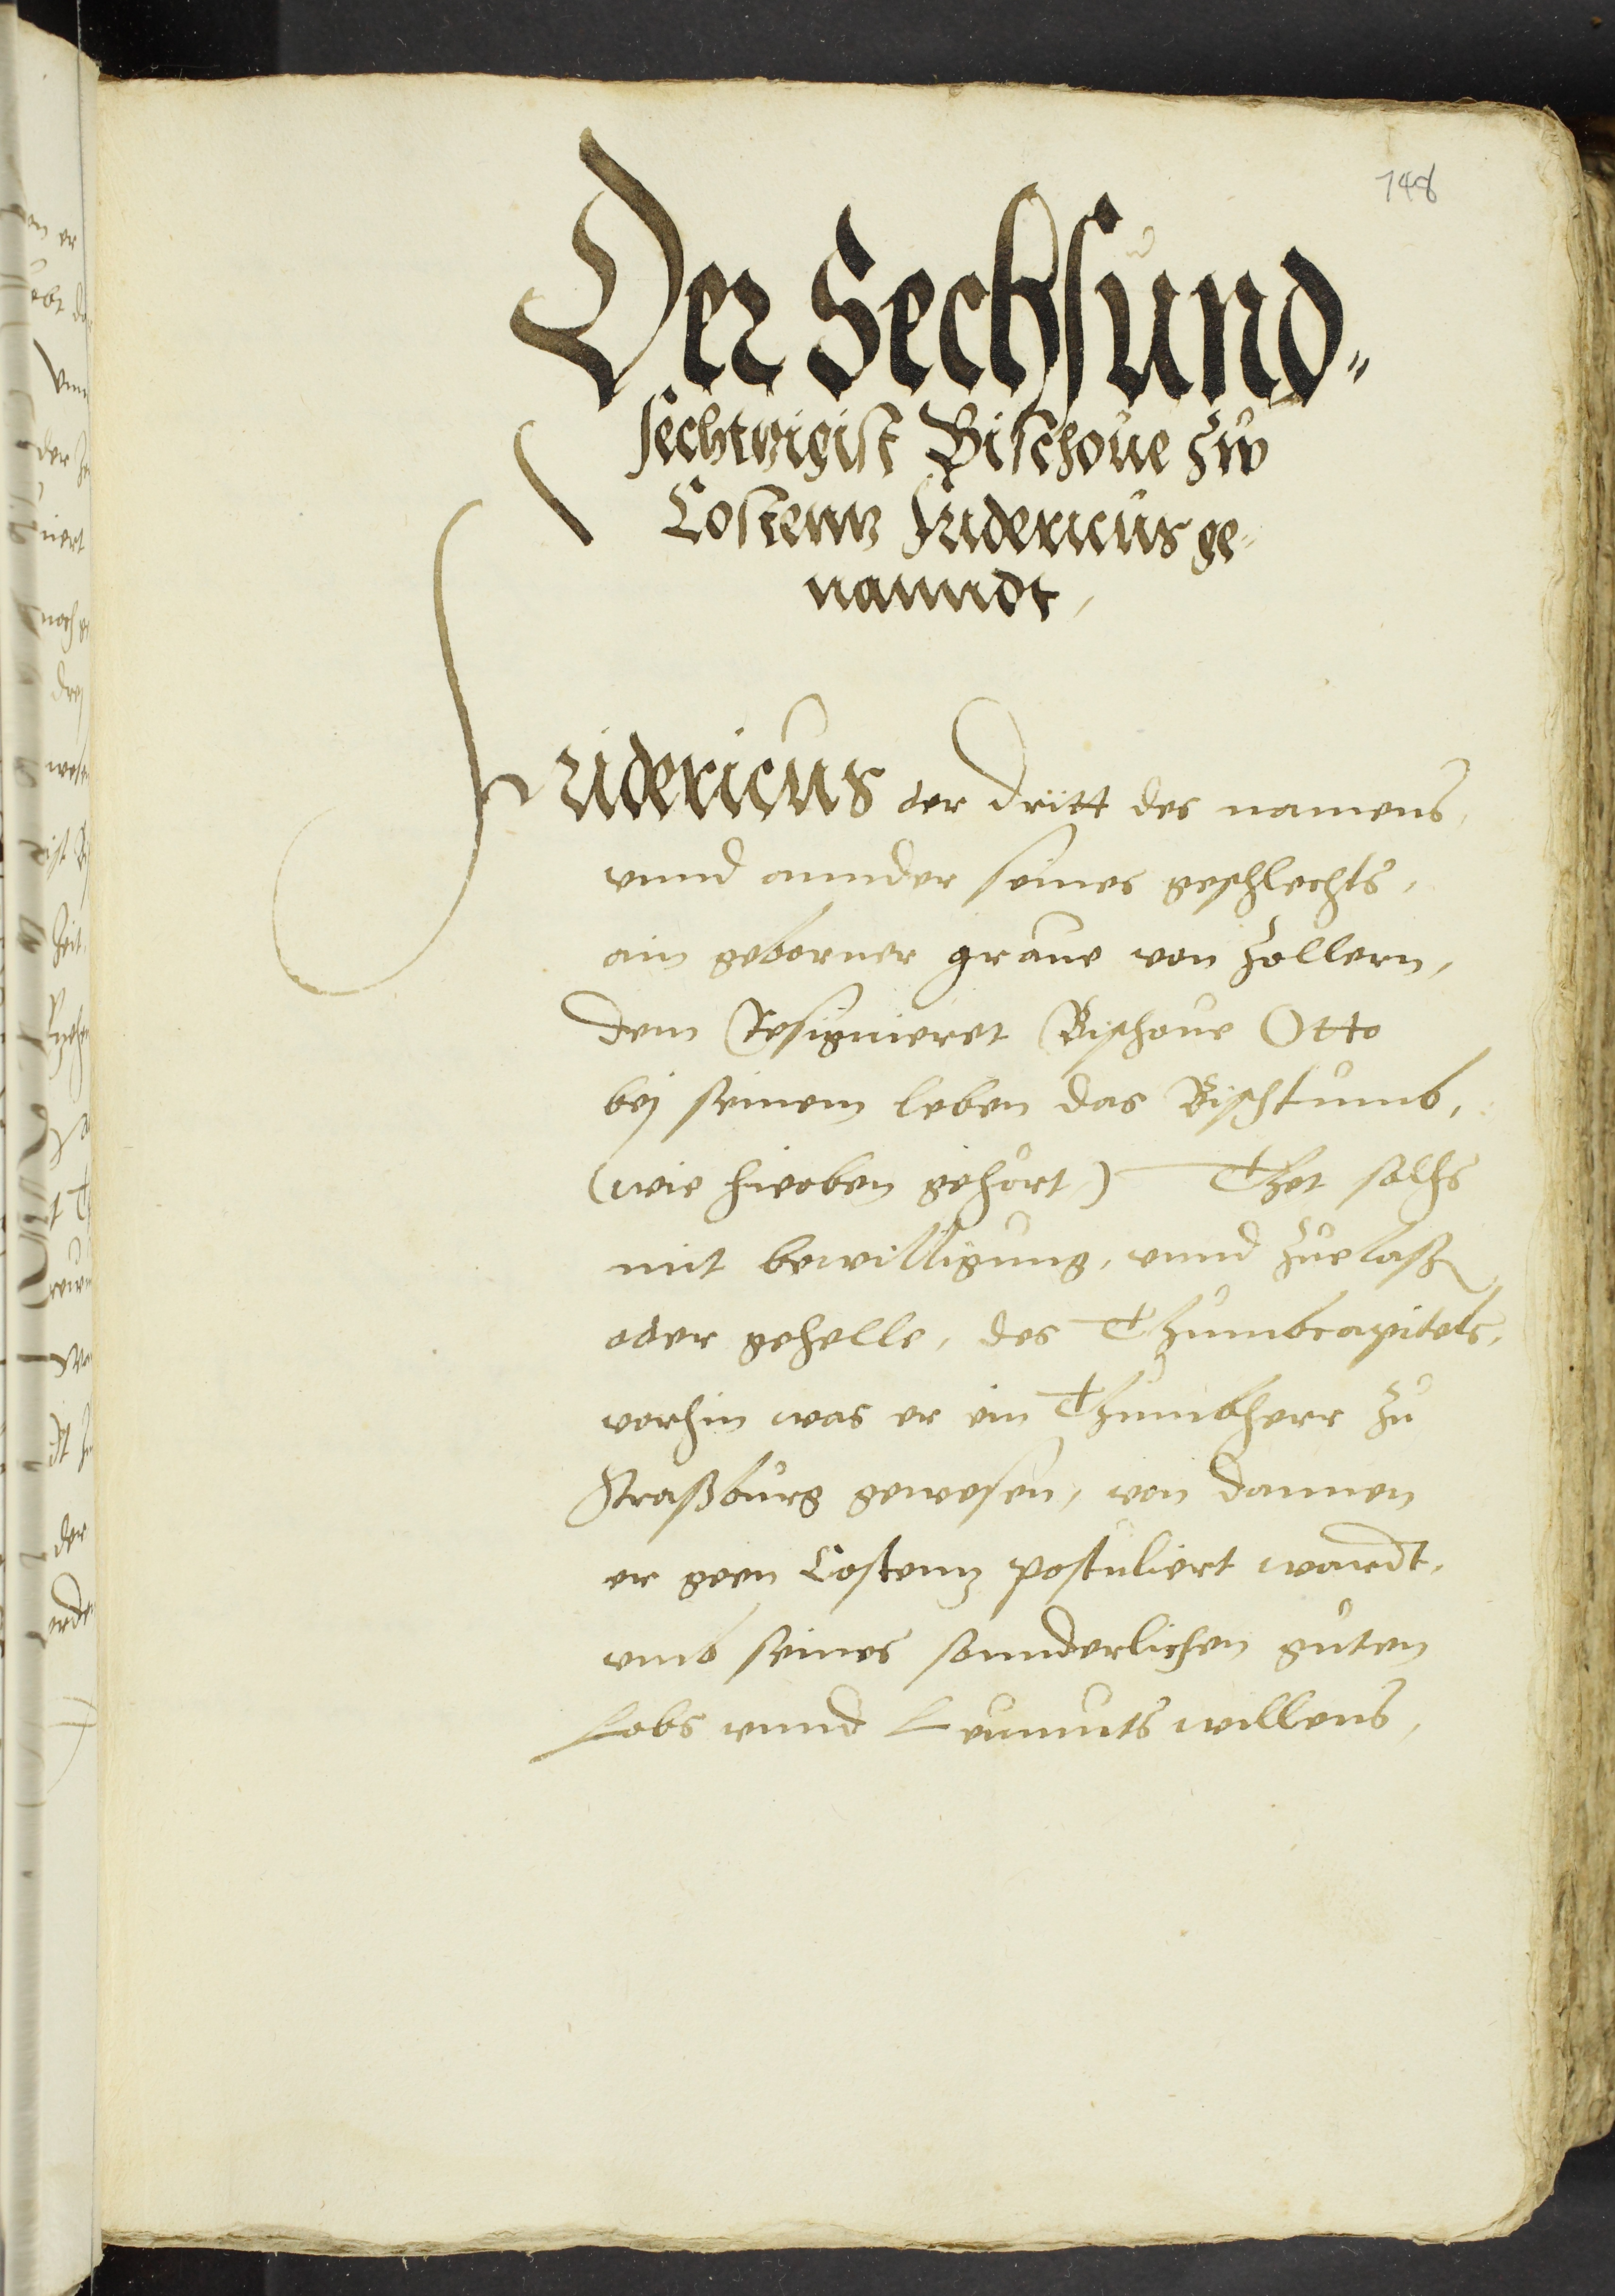 148
Der Sechsund-
sechtzigist Bischoue zw
Costenntz Fridericus ge-
nanndt,
Fridericus der dritt des namens,
vnnd annder seines geschlechts,
ain geborner graue von Zollern,
dem Resignieret Bischoue Otto
bej seinem leben das Bischtumb,
(wie hieoben gehört) Thet solhs
mit bewilligung, vnnd zuelaß
oder gehelle, des Thumbcapitels,
vorhin was er ein Thumbherr zu
Straßburg gewesen, von dannen
er geen Costentz postuliert wardt,
vmb seines sonnderlichen guten
Lobs vnnd Leumuts willens,